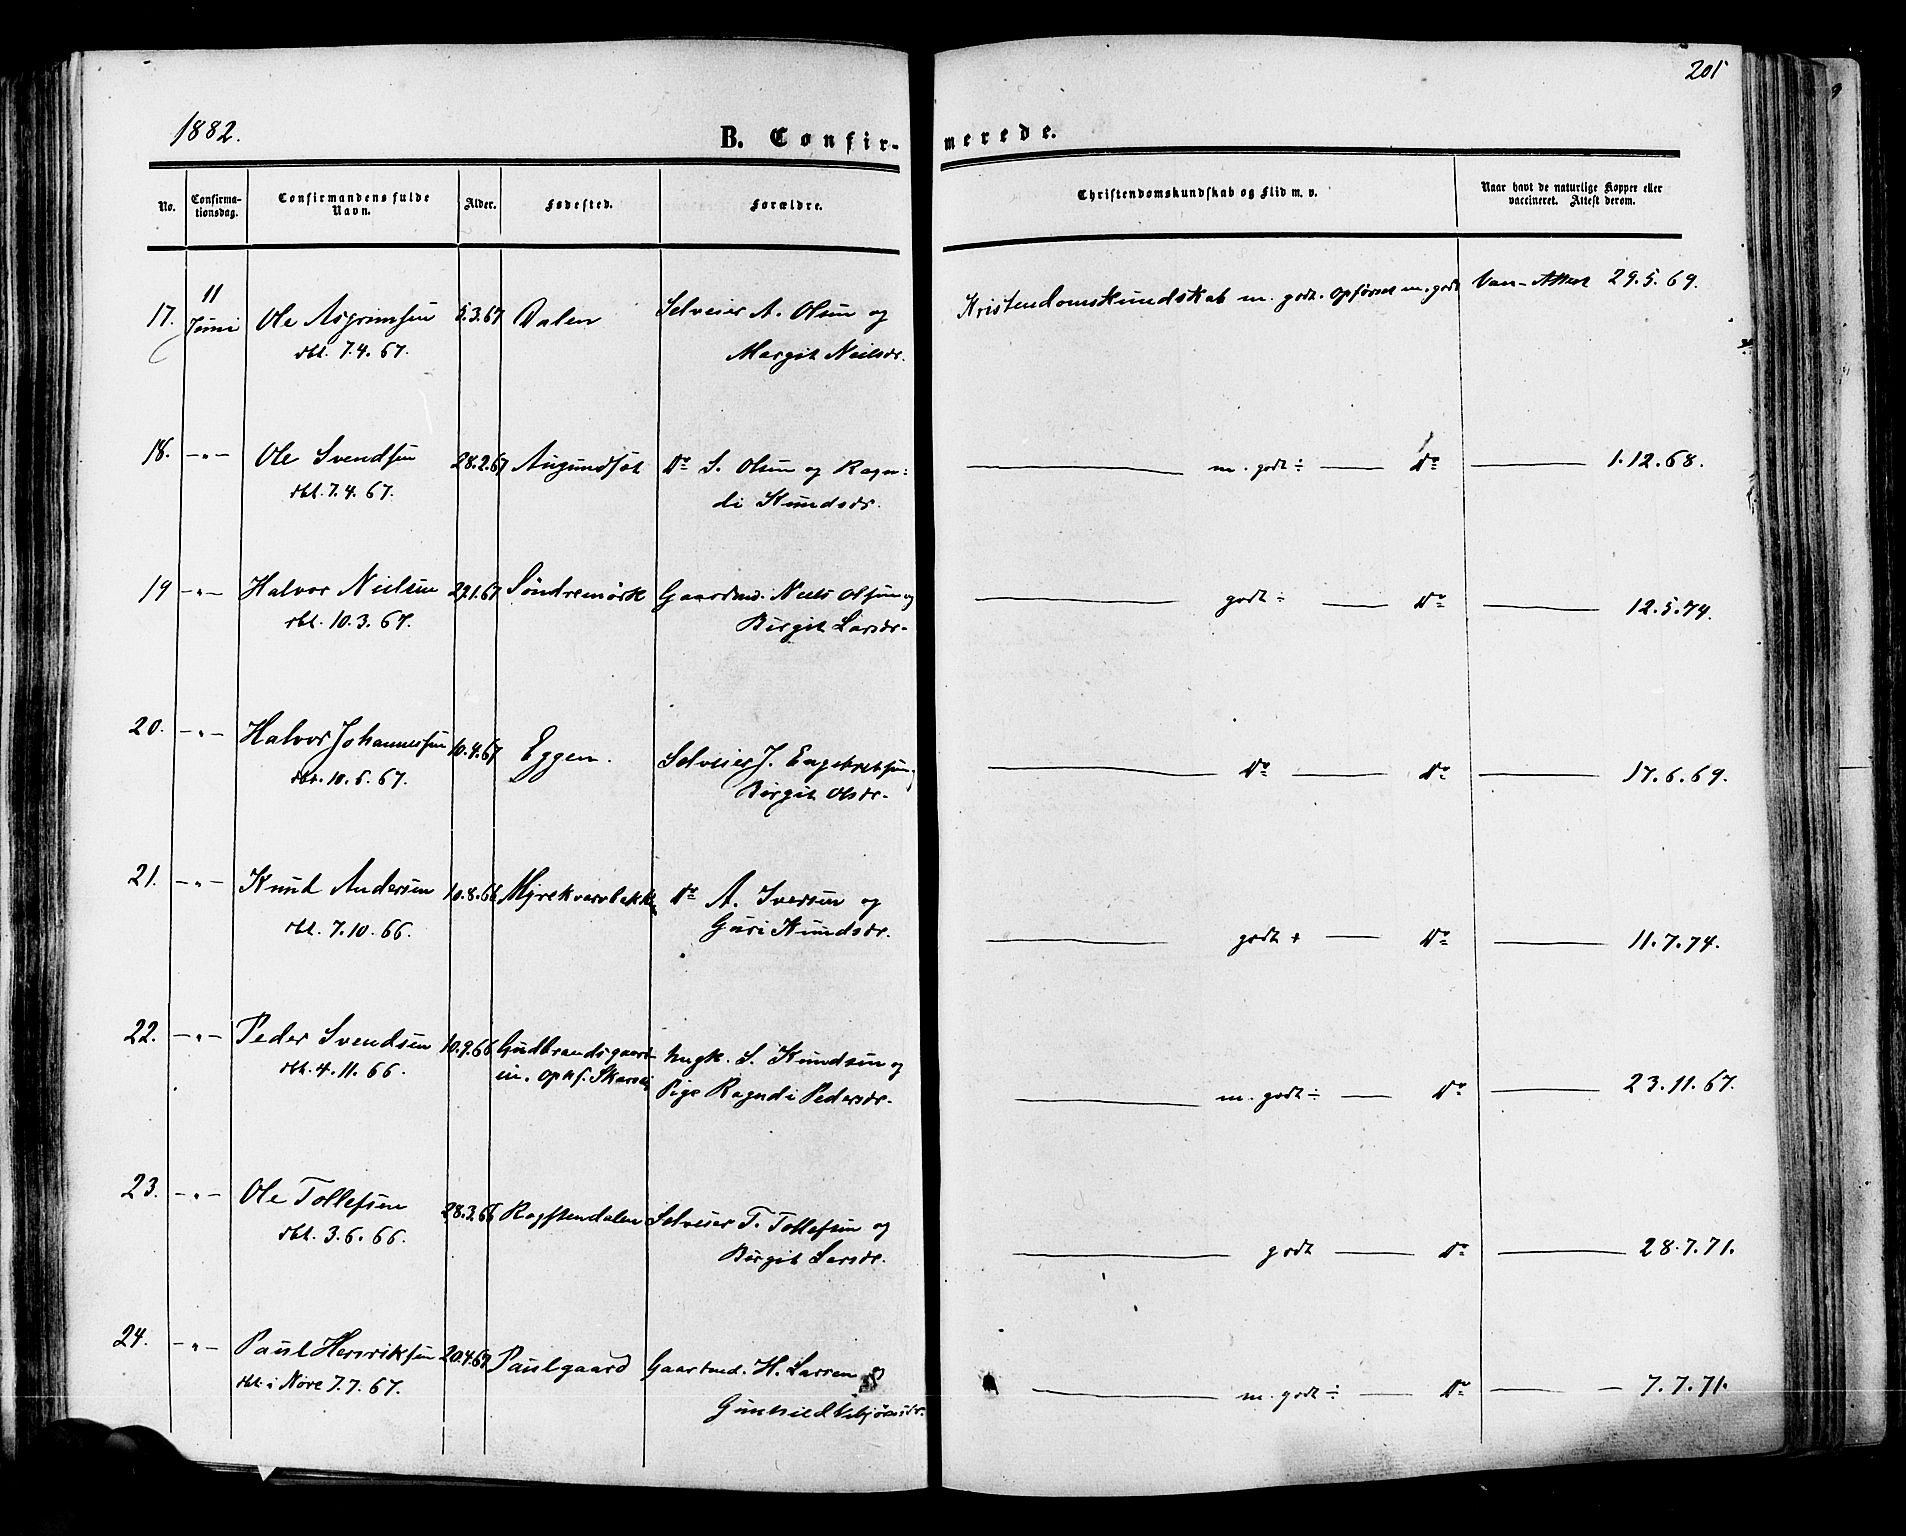 201
1882.
B. Confir-
merede.
No.
Confirma-
tionsdag.
Confirmandens fulde
Navn.
Alder.
Fødested.
Forældre.
Christendomskundskab og Flid m. v.
Naar havt de naturlige Kopper eller
vaccineret. Attest derom.
17. 11 Juni Ole Asgrimsen 5.3.67 Dalen Selveier A. Olsen og Kristendomskundskab m. godt. Opførsel m. godt Vac. Attest 29.5.69.
dbt. 7.4.67. Margit Nielsdr.
18. -"- Ole Svendsen 28.2.67 Do S. Olsen og Ragn- m. godt ÷ Do 1.12.68.
dbt. 7.4.67. di Knudsdr.
19 -"- Halvor Nielsen 27.1.67 Søndremørk Gaardmd. Niels Olsen og godt ÷ Do 12.5.74.
dbt. 10.3.67. Birgit Larsdr.
20. -"- Halvor Johannessen 10.4.67 Eggen. Selveier J. Engebretsen Do Do 17.6.69.
dbt. 10.6.67. Birgit Olsdr.
21. -"- Knud Andersen 10.8.66 Myrekvernbakken Do A. Iversen og godt + Do 11.7.74.
dbt. 7.10.66. Guri Knudsdr.
22. -"- Peder Svendsen 10.9.66 Gudbrandsgaard- Ungk. S. Knudsen og m. godt ÷ Do 23.11.67.
dbt. 4.11.66. Pige Ragndi Pedersdr.
23. -"- Ole Tollefsen 28.3.66 Selveier T. Tollefsen og godt Do 28.7.71.
dbt. 3.6.66. Birgit Larsdr.
24. -"- Paul Henriksen 20.4.67 Paulgaard Gaardmd. H. Larsen og m. godt ÷ Do 7.7.71.
dbt. i Nore 7.7.67. Gunhild